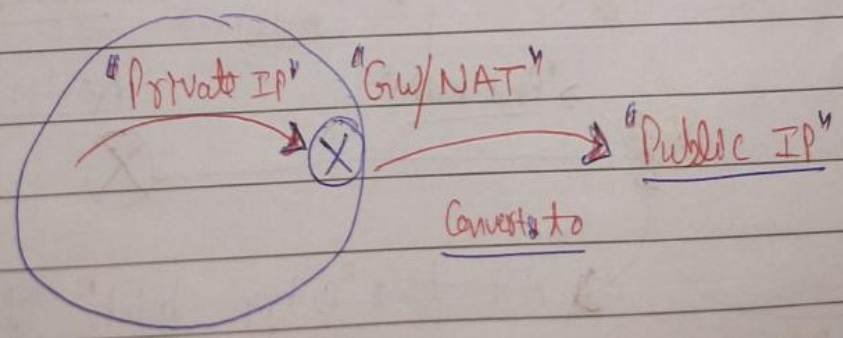 "Private IP" "GW/NAT"
X "Public IP"
Converts to